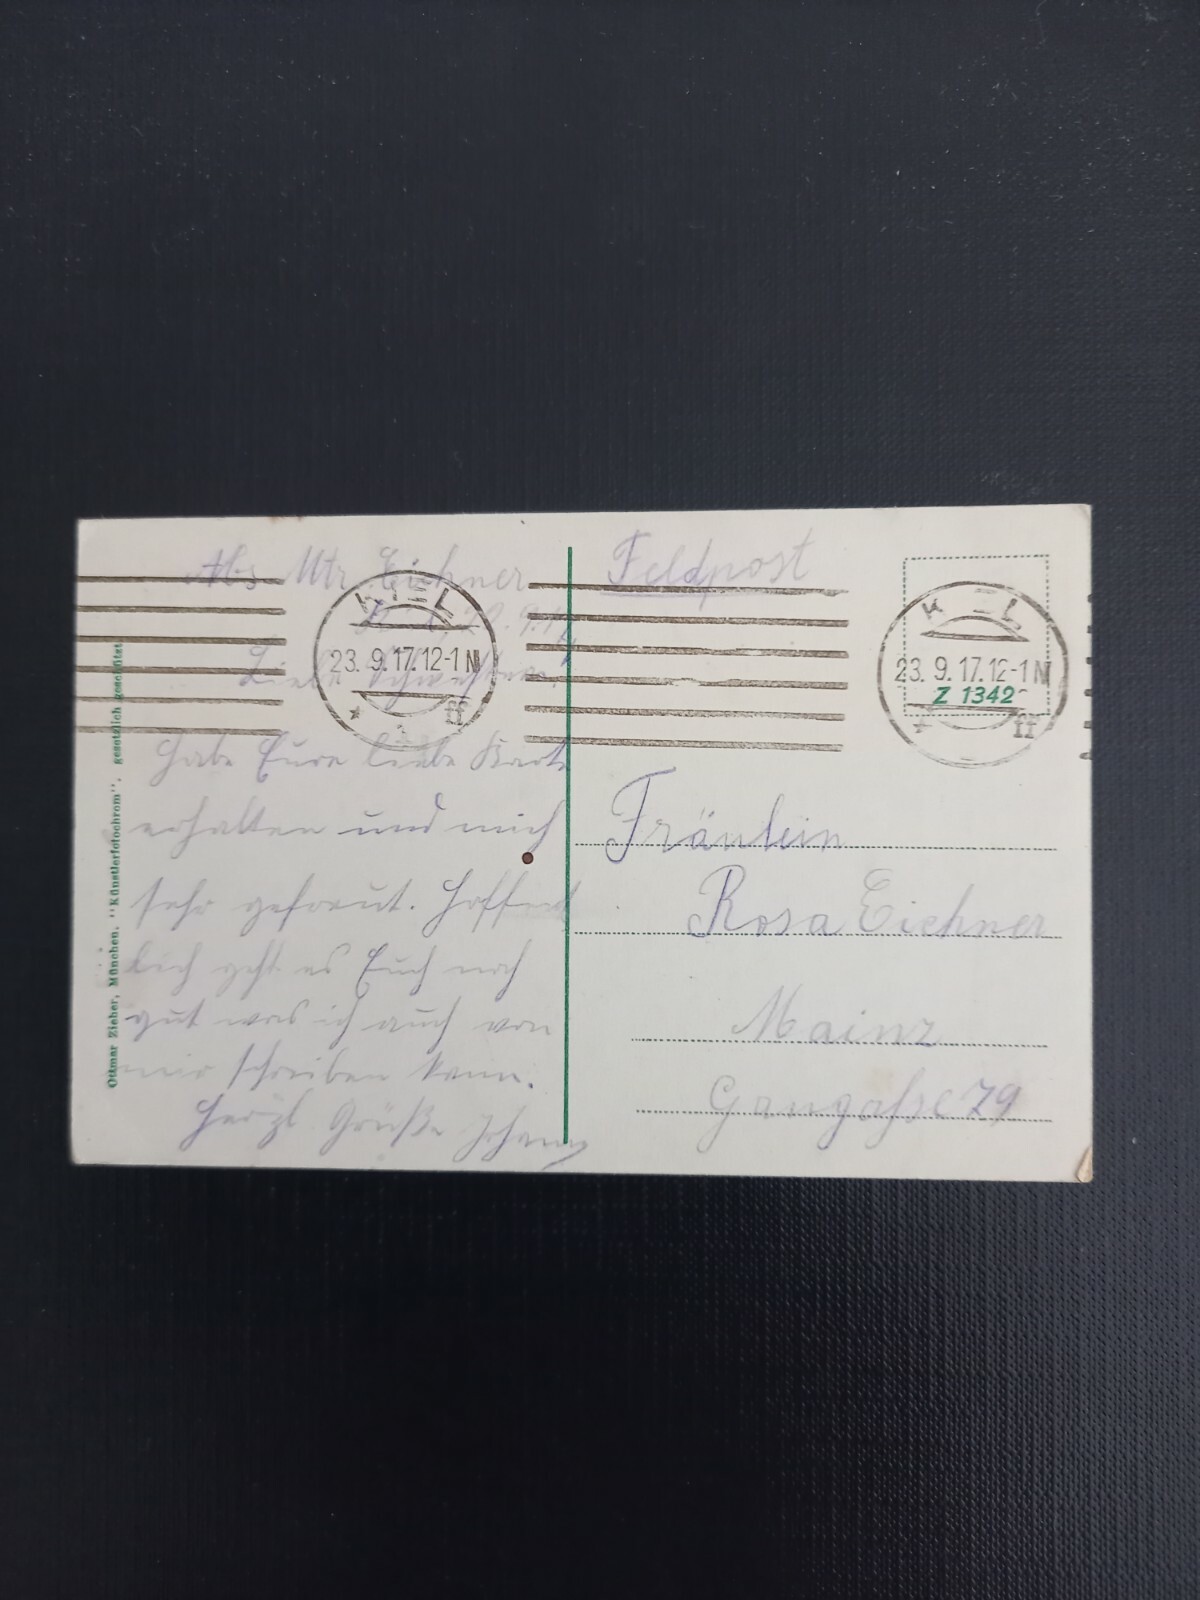 Abs. Mtr. Eichner
Kiel, 22.9.17
Liebe Schwestern!
Habe Eure liebe Karte
erhalten und mich
sehr gefreut. Hoffent
lich geht es Euch noch
gut was ich auch von
mir schreiben kann.
Herzl Grüße
Ottmar Zieher, München. "Künstlerfotochrom", gesetzlich geschützt
KIEL
23.9.17.12-1N
* ff
Feldpost
KIEL
23.9.17.12-1N
Z 1342
* ff
Fräulein
Rosa Eichner
Mainz
Gaugaſse 79